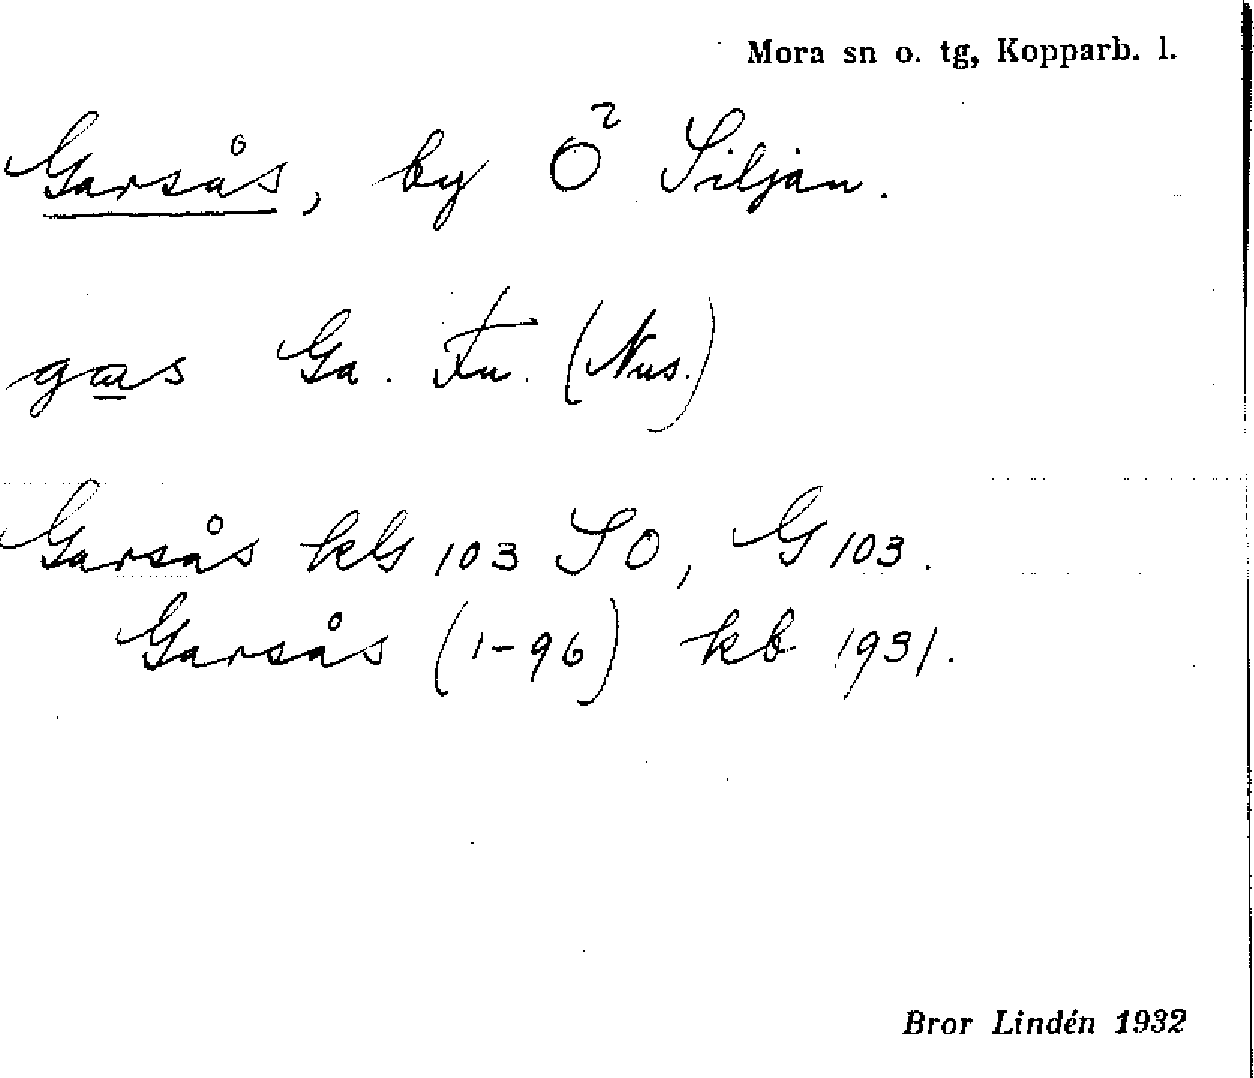 Mora sn o. tg, Kopparb. l.
Garsås, by Ö Siljan.
gas Ga. Fu. (Nus.)
Garsås kls 103 SO, G 103.
Garsås (1-96) kb 1931.
Bror Lindén 1932